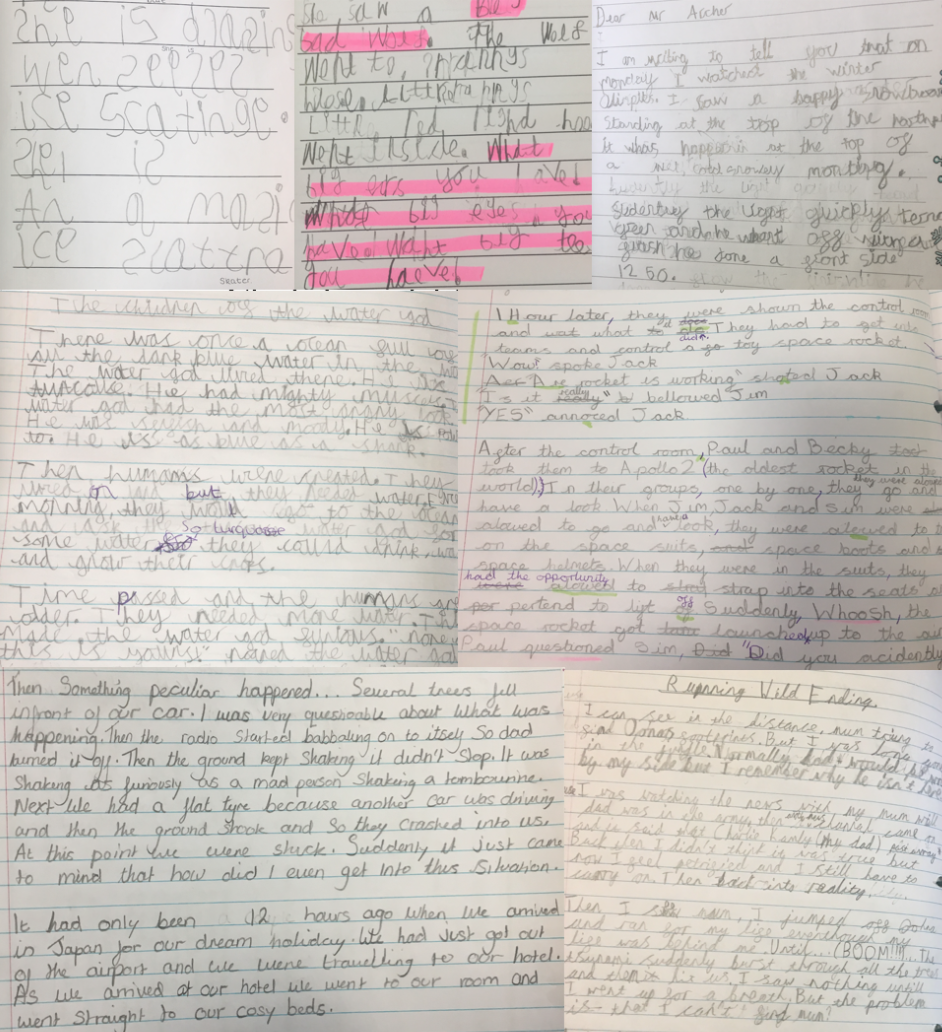 She is amazin
wen seeses
ise scatinge.
She is
An a mazi
ice scattra
Seaser
she saw a Big
bad Wolf. the Wolf
Went to
Little red
Went inside. What
big ers you have!
What big eyes you
have! Waht big tee
you haeve!
Dear Mr Archer
I am writing to tell you that on
monday I watched the winter
Olimpics. I saw a happy snowboar
standing at the top of the
it whas happenin at the top of
a cold snowey
the light quickly
green and he whent off
done a front side
1250.
The children of the water god
There was once a ocean full
all the dark blue water in the
The water god lived there. He
He had mighty muscles.
water god had the most angry look
He was selfish and moody. He
to. He is as blue as a shark.
Then humans were created. They
lived on land but they needed water. Every
morning, they would go to the ocean
and ask the water god
some water so they could drink, wa
and grow their crops.
Time passed and the humans gr
older. They needed more water. Th
made the water god furious. "
this is yours"
1 Hour later, they were shown the control room
and wat what to did do. They had to get into
teams and control a toy space rocket.
Wow" spoke Jack
Are rocket is working" shoted Jack
Is it really" bellowed Jim
"YES" annoced Jack
After the control room, Paul and Becky
took them to Apollo 2 (the oldest rocket in the
world). In their groups, one by one, they were alowed go and
have a look When Jim, Jack and Sun were
alowed to go and have a look, they were alowed to
on the space suits, space boots and
space helmets. When they were in the suits, they
had the opportunity to strap into the seats
pertend to lift off Suddenly, Whoosh, the
space rocket got launched up to the
Paul questioned Sim, "Did you acidently
Then Something peculiar happened... Several trees fell
infront of our car. I was very questionable about what was
happening. Then the radio started babbaling on to itself so dad
turned it off. Then the ground kept shaking it didn't stop. It was
Shaking as furiously as a mad person shaking a tambourine.
Next we had a flat tyre because another car was driving
and then the ground shook and so they crashed into us.
At this point we were stuck. Suddenly it just came
to mind that how did I even get into this situation.
It had only been a 12 hours ago when we arrived
in Japan for our dream holiday. We had just got out
of the airport and we were travelling to our hotel.
As we arrived at our hotel we went to our room and
went straight to our cosy beds.
Running Wild Ending.
I can see in the distance, mum trying to
find Oonas footprints. But I was
in the jungle. Normally, dad would be
by my side but I remember why he isn't here
I was watching the news with my mum
dad was in the army then came
and it said that Charlie Kamly (my dad) pass away.
But then I didn't think it was true but
now I feel petrified and I still have to
carry on. Then back into reality.
Then I saw mum, I jumped off Oona
and ran for my life everthough my
life was behind me Until... (BOOM!!!). The
tsunami suddenly burst through all the trees
and then it hit us. I saw nothing untill
I went up for a breath. But the problem
is- that I can't find mum?